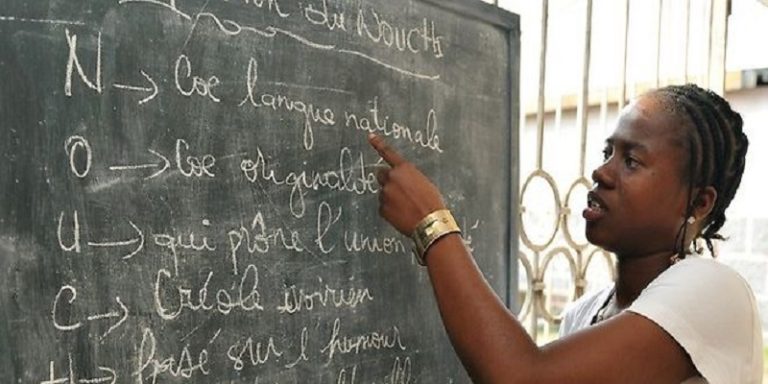 du Nouchi
N → Coe langue nationale
O → Coe originalité
U → qui prône l'union
C → Créole ivoirien
H → basé sur l'humour